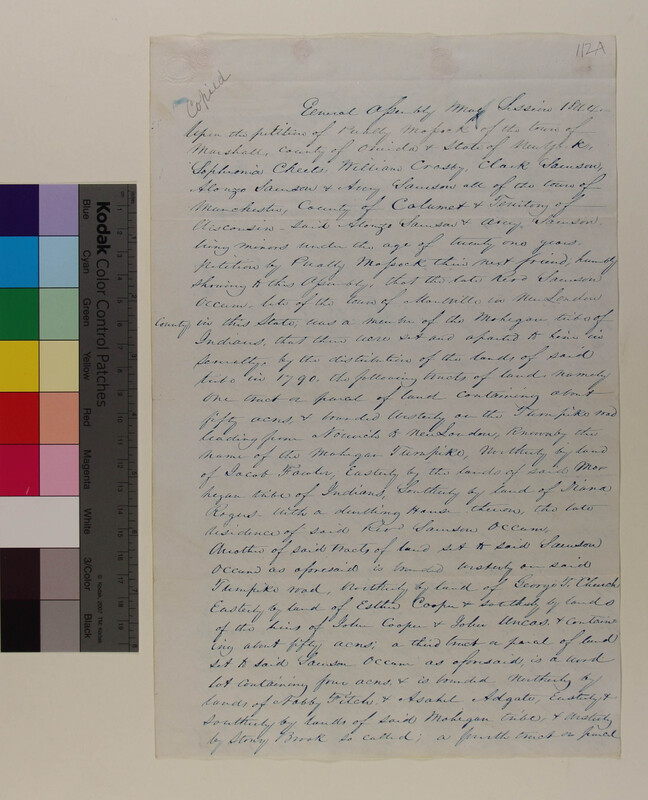 112A
Copied
General Assembly May Session 1844
Upon the petition of Pually Mossock of the town of
Marshall, County of Oneida & State of New York,
Sophronia Cheets, William Crosby, Clark Samson,
Alonzo Samson & Avery Samson all of the town of
Manchester, County of Calumet & Territory of
Wisconsin. Said Alonzo Samson & Avery Samson
being minors under the age of twenty one years.
Petition by Pually Mossock their next friend, humbly
showing to this Assembly, that the late Revd Samson
Occum, late of the town of in New London
County in this State, was a member of the Mohegan tribe of
Indians, that there were set and aparted to him in
severalty, by the distribution of the lands of said
tribe in 1790. the following tracts of land namely
One tract or parcel of land containing about
fifty acres, & bounded Westerly on the Turnpike road
leading from Norwich to New London, Known by the
name of the Mohegan Turnpike, Northerly by land
of Jacob Fowler, Easterly by the lands of said Mo
hegan tribe of Indians, Southerly by land of Diana
Rogers with a dwelling House thereon, the late
residence of said Revd Samson Occum,
Another of said tracts of land set to said Samson
Occum as aforesaid is bounded Westerly on said
Turnpike road, Northerly by land of George Church
Easterly by land of Esther Cooper & Southerly by lands
of the heirs of John Cooper & John Uncas, & contain
ing about fifty acres; a third tract or parcel of land
set to said Samson Occum as aforesaid, is a wood
lot containing four acres & is bounded Northerly by
lands of Nabby Fitch & Asahel Adgate, Easterly &
Southerly by lands of said Mohegan tribe, & Westerly
by Stony Brook so called; a fourth tract or parcel
Kodak Color Control Patches
Blue
Cyan
Green
Yellow
Red
Magenta
White
3/Color
Black